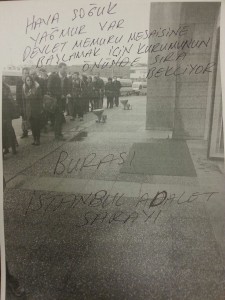 HAVA SOĞUK
YAĞMUR VAR
DEVLET MEMURU MESAİSİNE
BAŞLAMAK İÇİN KURUMUNUN
ÖNÜNDE SIRA
BEKLİYOR
BURASI
İSTANBUL ADALET
SARAYI